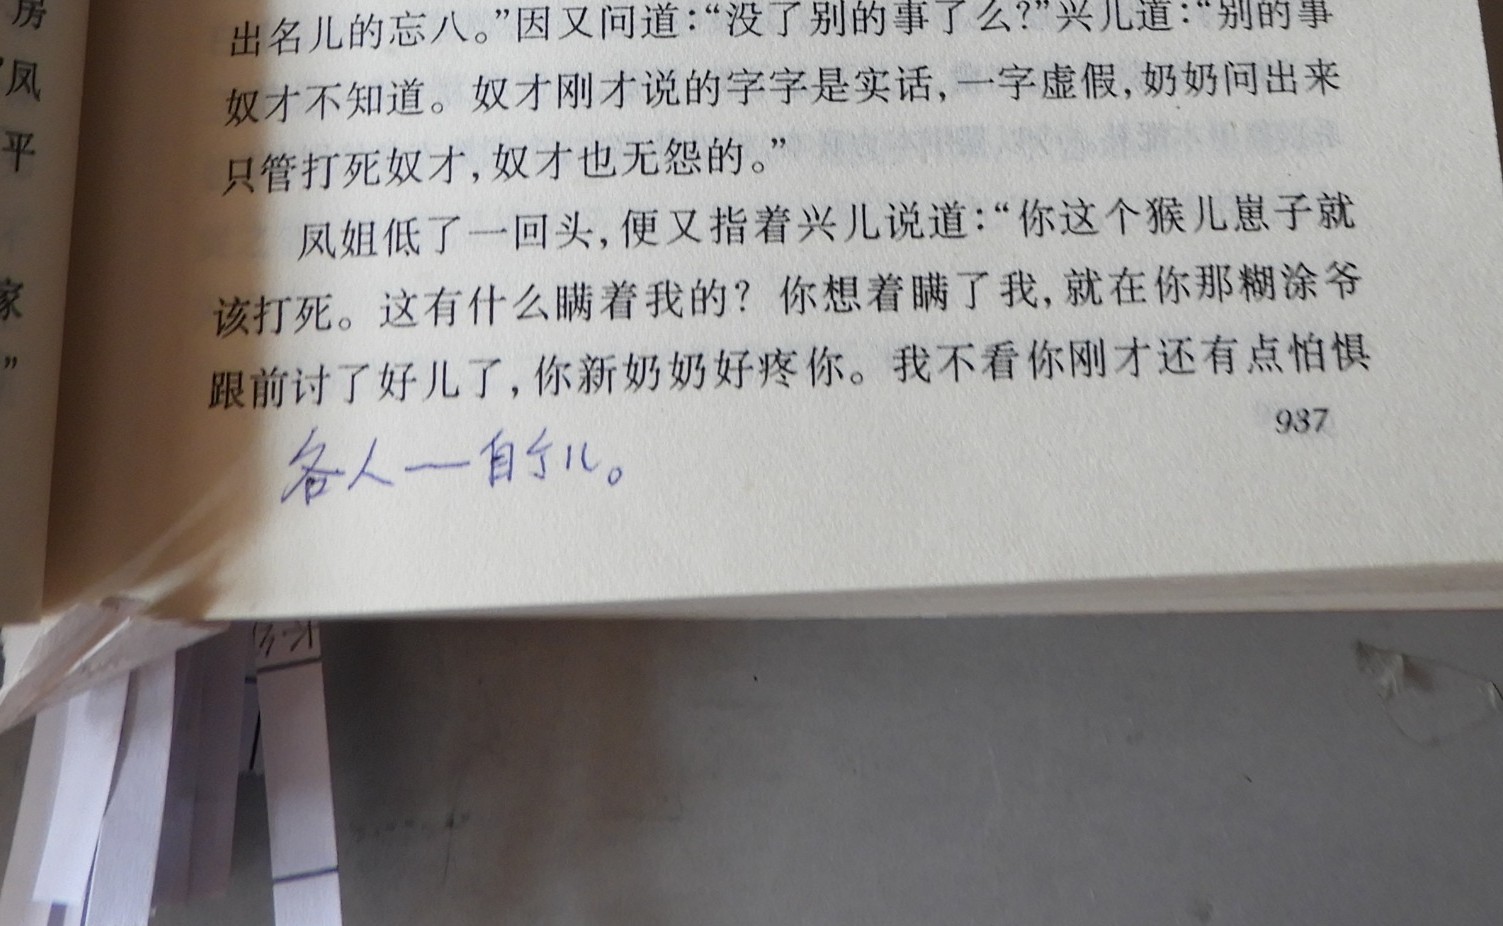 房
凤
平
家
”
出名儿的忘八。”因又问道：“没了别的事了么？”兴儿道：“别的事
奴才不知道。奴才刚才说的字字是实话，一字虚假，奶奶问出来
只管打死奴才，奴才也无怨的。”
凤姐低了一回头，便又指着兴儿说道：“你这个猴儿崽子就
该打死。这有什么瞒着我的？你想着瞒了我，就在你那糊涂爷
跟前讨了好儿了，你新奶奶好疼你。我不看你刚才还有点怕惧
937
各人——自个儿。